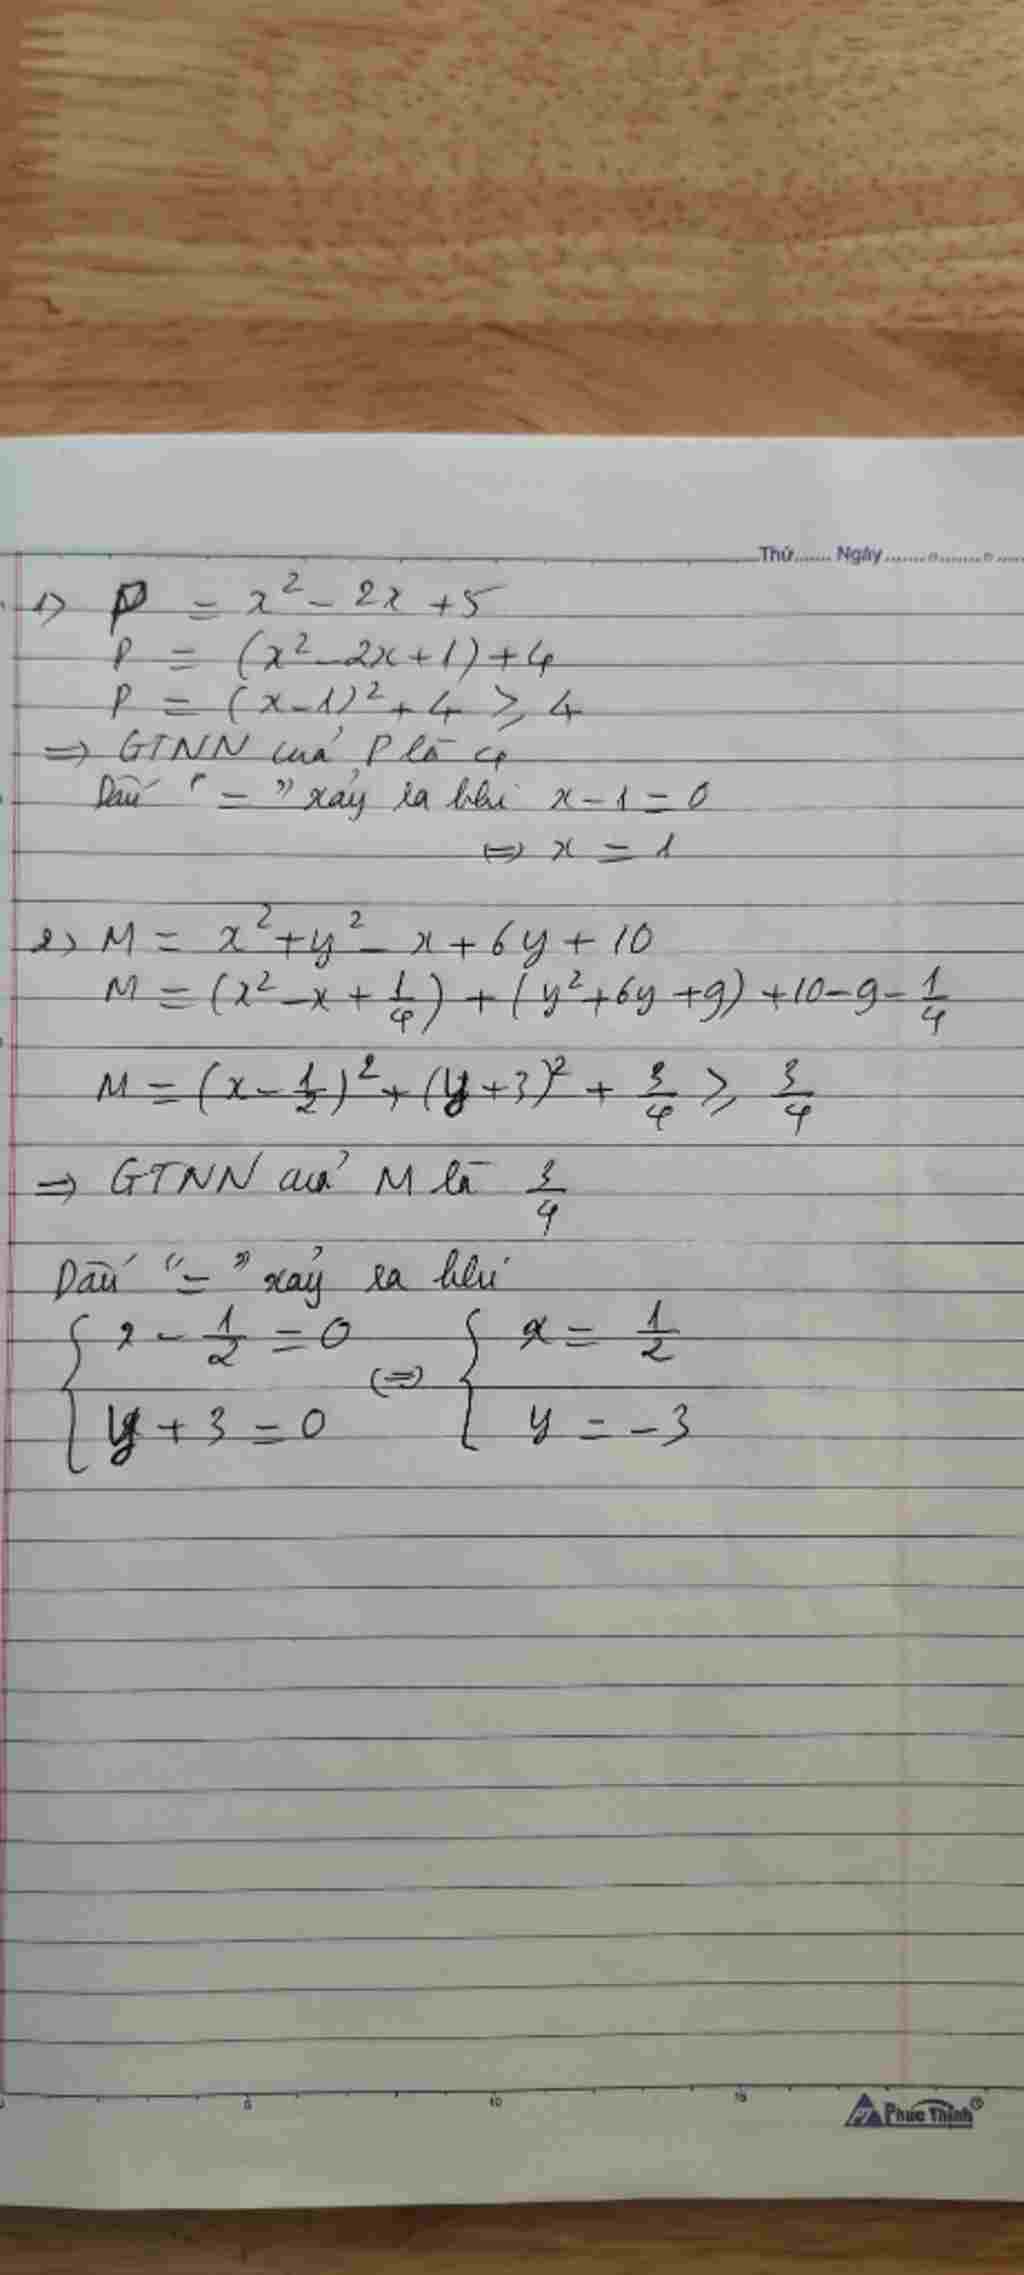 Thứ....... Ngày.......
1) P = x² - 2x + 5
P = (x² - 2x + 1) + 4
P = (x - 1)² + 4 ≥ 4
=> GTNN của P là 4
Dấu "=" xảy ra khi x - 1 = 0
<=> x = 1
2) M = x² + y² - x + 6y + 10
M = (x² - x + 1/4) + (y² + 6y + 9) + 10 - 9 - 1/4
M = (x - 1/2)² + (y + 3)² + 3/4 ≥ 3/4
=> GTNN của M là 3/4
Dấu "=" xảy ra khi
{ x - 1/2 = 0 <=> { x = 1/2
{ y + 3 = 0 { y = -3
5 10 15
Phuc Thinh®